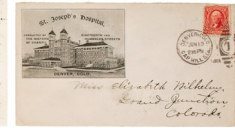 St. Joseph's Hospital,
CONDUCTED BY
THE SISTERS
OF CHARITY
EIGHTEENTH AND
HUMBOLDT STREETS
DENVER, COLO.
Miss Elizabeth Wilhelmy,
Grand Junction
Colorado.